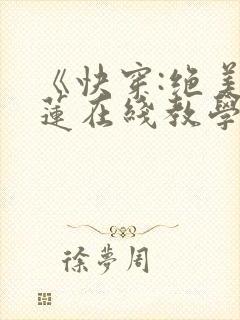 《快穿:绝美
蓮在綫教學
徐夢周